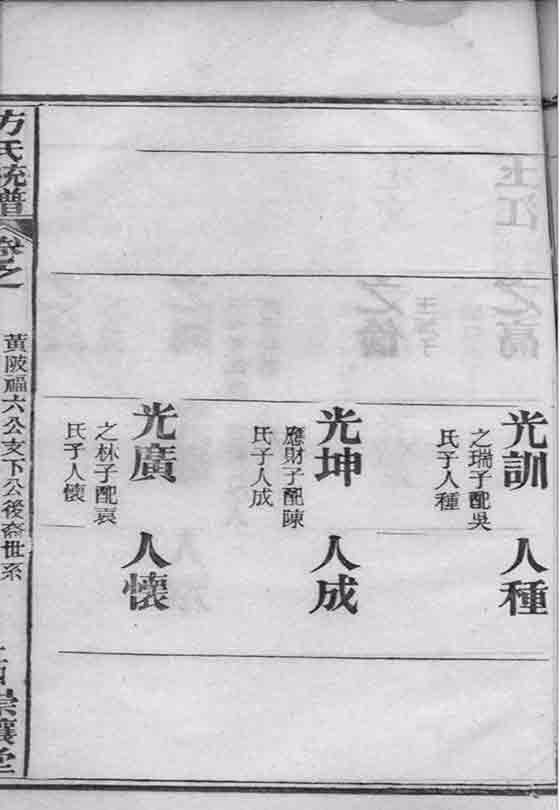 光訓
之瑞子配吳
氏子人種
人種
光坤
應財子配陳
氏子人成
人成
光廣
之林子配袁
氏子人懷
人懷
方氏統譜
卷之
黃陂福六公支下公後裔世系